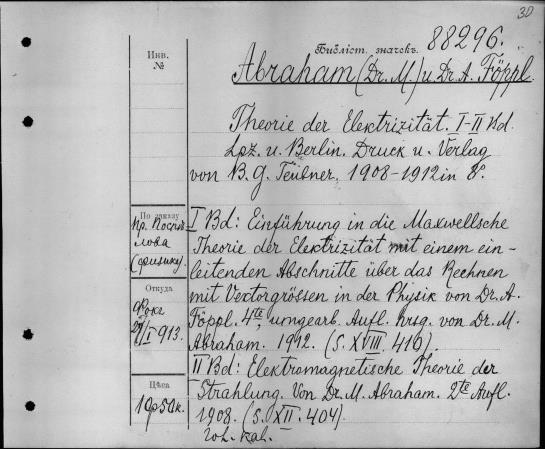 30
Инв.
№
Библіот. значекъ. 88296.
Abraham (Dr. M.) u. Dr. A. Föppl.
Theorie der Elektrizität. I-II Bd.
Lpz. u. Berlin. Druck u. Verlag
von B. G. Teubner, 1908-1912 in 8°.
По заказу
пр. Поспѣ-
лова
(физику).
I Bd: Einführung in die Maxwellsche
Theorie der Elektrizität mit einem ein-
leitenden Abschnitte über das Rechnen
mit Vektorgrössen in der Physik von Dr. A.
Föppl. 4te, umgearb. Aufl. hrsg. von Dr. M.
Abraham. 1912. (S. XVIII. 416).
Откуда
Фокъ
I 913.
II Bd: Elektromagnetische Theorie der
Strahlung. Von Dr. M. Abraham. 2te Aufl.
1908. (S. XII. 404).
Цѣна
10р 50к.